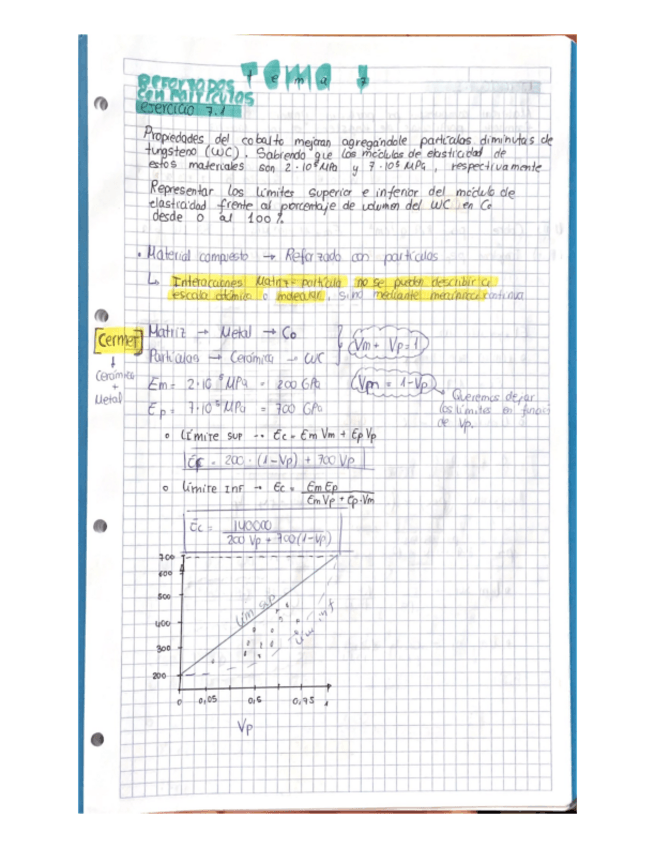 Tema 7
Reforzados
con partículas
ejercicio 7.1
Propiedades del cobalto mejoran agregándole partículas diminutas de
tungsteno (WC). Sabiendo que los módulos de elasticidad de
estos materiales son 2·10⁵ MPa y 7·10⁵ MPa, respectivamente
Representar los límites superior e inferior del módulo de
elasticidad frente al porcentaje de volumen del WC en Co
desde 0 al 100%.
• Material compuesto → Reforzado con partículas
↳ Interacciones Matriz-partícula no se pueden describir a
escala atómica o molecular, sino mediante mecánica continua
Cermet
↓
Cerámica
+
Metal
Matriz → Metal → Co
Partículas → Cerámica → WC
Vm + Vp = 1
Em = 2·10⁵ MPa = 200 GPa
Vm = 1-Vp
Ep = 7·10⁵ MPa = 700 GPa
Queremos dejar
los límites en función
de Vp.
o límite sup → Ec = Em Vm + Ep Vp
Ec = 200 · (1-Vp) + 700 Vp
o límite INF → Ec = Em Ep / Em Vp + Ep·Vm
Ec = 140000 / 200 Vp + 700 (1-Vp)
700
600
500
400
300
200
lím sup
lím inf
0 0,05 0,5 0,75 1
Vp